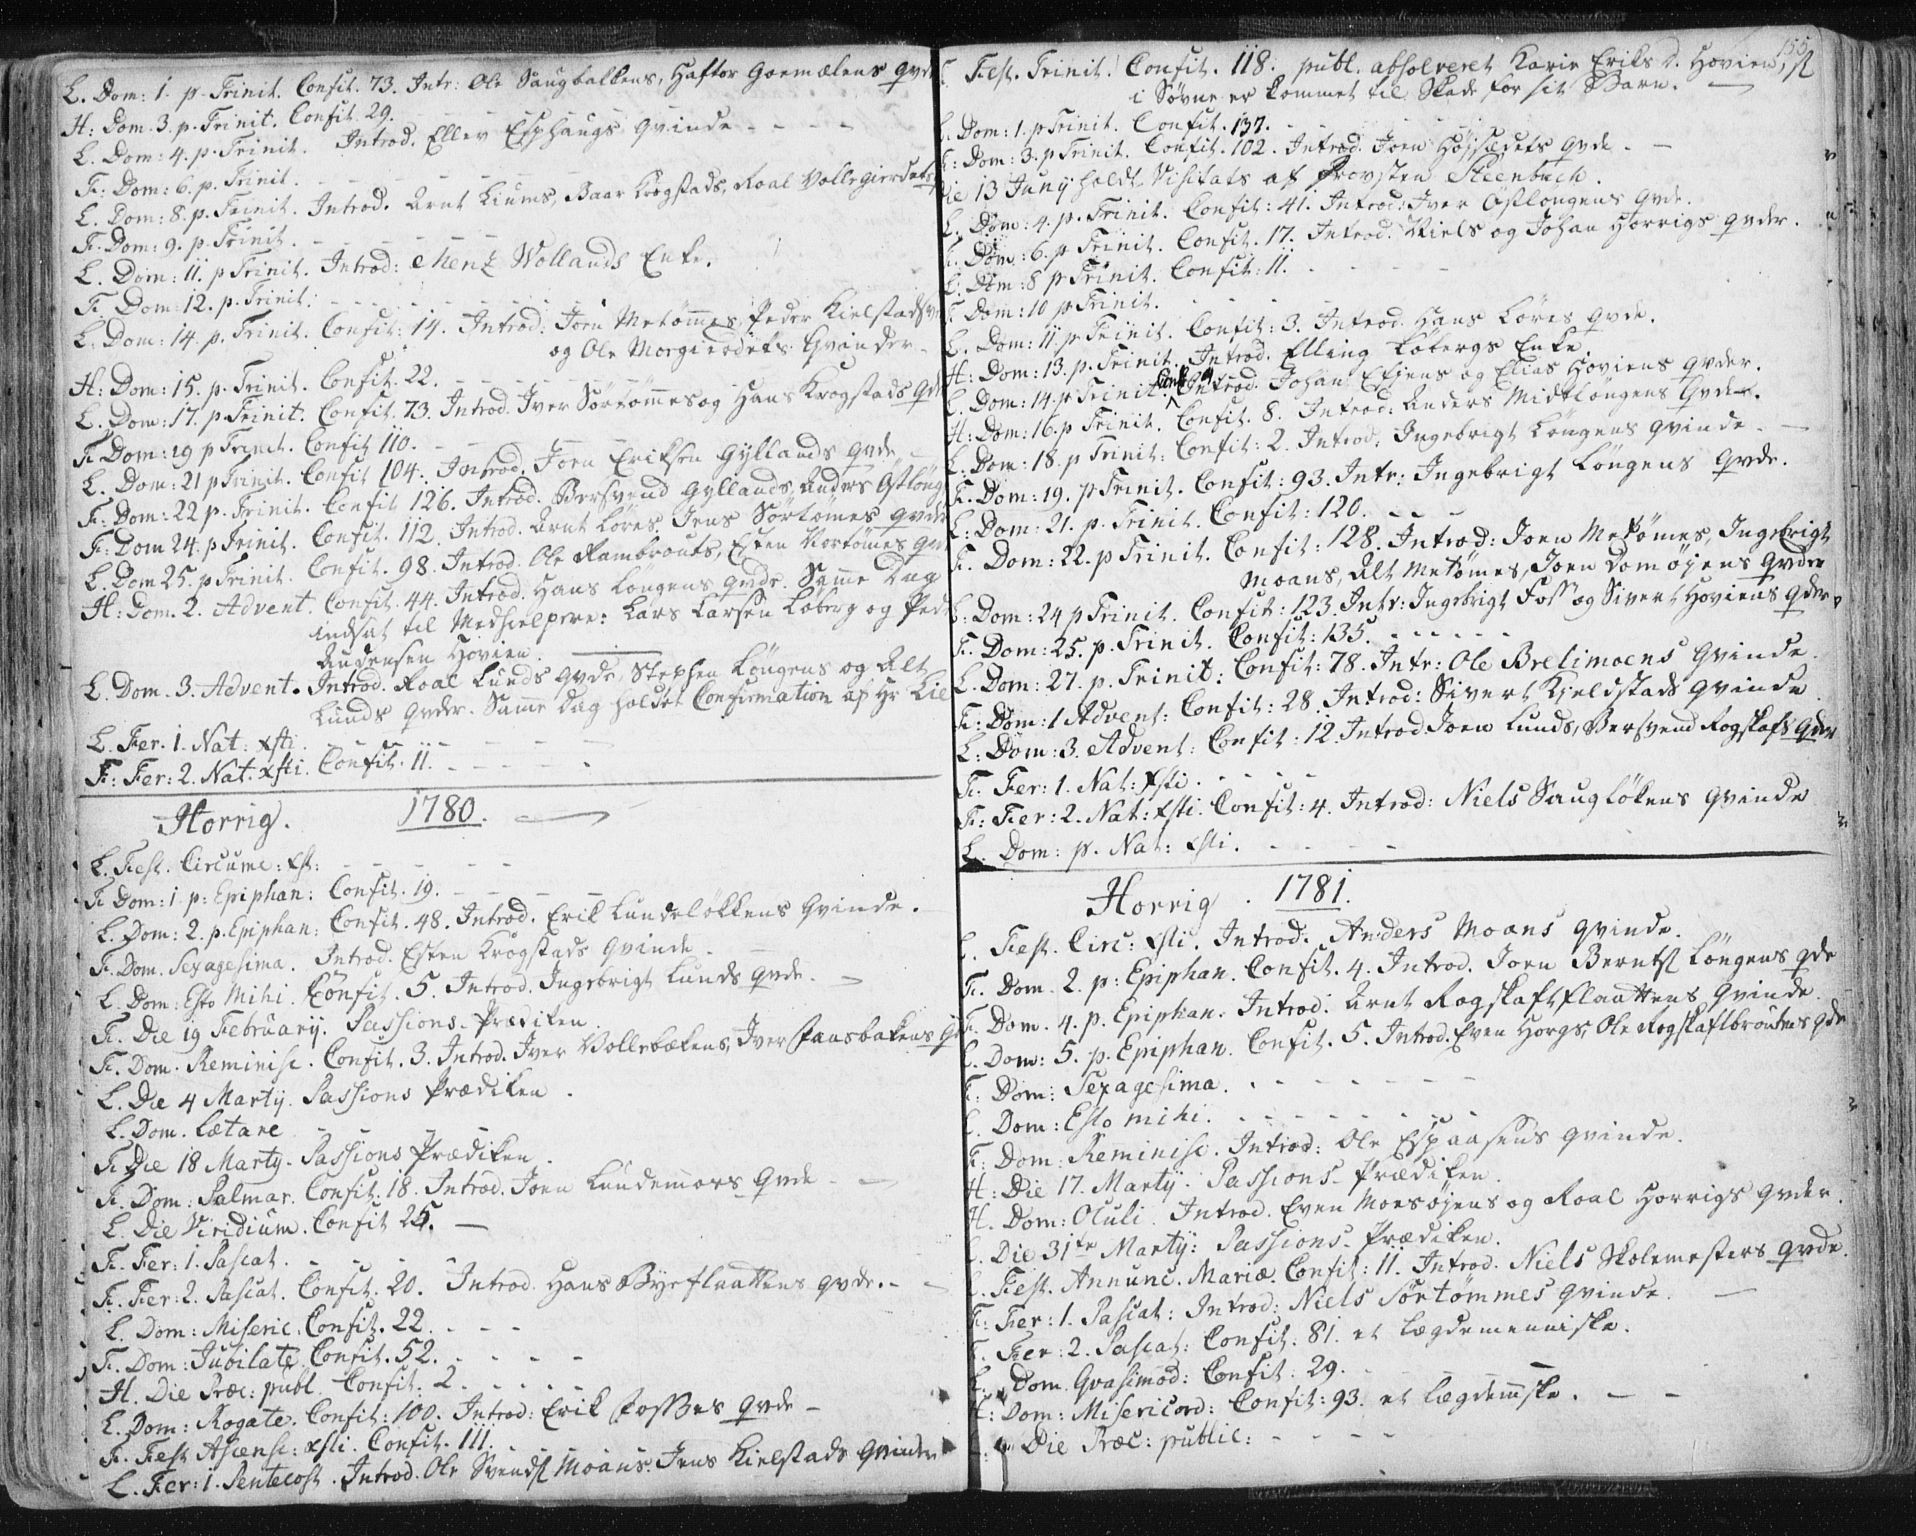 L. Dom: 1. p. Trinit. Confit. 73. Intr: Ole Saugbakkens, Haftor Goemælens qvd
H: Dom. 3. p. Trinit. Confit. 29.
L. Dom: 4. p. Trinit. Introd. Ellev Esphaugs qvinde - - - -
F: Dom: 6. p. Trinit. - - - -
L. Dom: 8. p. Trinit. Introd. Arnt Liums, Baar Krogstads, Roal Vollegierdets
F. Dom: 9. p. Trinit. - - - -
L. Dom: 11. p Trinit. Introd: Mentz Wollands Enke.
F. Dom: 12. p. Trinit: - - - -
L. Dom: 14. p. Trinit. Confit: 14. Introd: Joen Metømmes, Peder Kielstads
og Ole Morgierdets Qvinder -
H: Dom: 15. p. Trinit. Confit. 22. - - - -
L. Dom: 17. p. Trinit. Confit. 73. Introd. Iver Sørtømmes og Hans Krogstads Qd
F. Dom: 19 p Trinit. Confit 110. - -
L. Dom: 21 p Trinit. Confit 104. Introd. Joen Eriksen Gyllands qvde
F: Dom: 22 p. Trinit. Confit 126. Introd. Bersvend Gyllands, Anders Østløng
F: Dom 24. p Trinit. Confit. 112. Introd. Arnt Løres, Jens Sørtømes qvde
L. Dom 25. p Trinit. Confit. 98. Introd. Ole Rambrouts, Esten Nortømes qv
H: Dom. 2. Advent. Confit. 44. Introd. Hans Løngens qvde. Samme Dag
indsat til Medhielpere: Lars Larsen Loberg og Ped
Andersen Hovien.
L. Dom. 3. Advent. Introd. Roal Lunds qvde, Stephen Løngens og Alt
Lunds qvder. Samme Dag holdet Confirmation af Hr Lil
L. Fer. 1. Nat: Xsti. - - - -
F: Fer: 2. Nat. Xsti. Confit. 11. - - - -
Horrig. 1780.
L. Fest. Circumc: Xst: - - - -
F Dom: 1 p: Epiphan: Confit. 19. - - - -
L. Dom: 2. p. Epiphan: Confit. 48. Introd. Erik Lundeløkkens Qvinde.
F. Dom. Sexagesima. Introd. Esten Krogstads Qvinde.
L. Dom: Esto Mihi. Confit. 5. Introd. Ingebrigt Lunds qvde.
F. Die 19 February. Passions-Prædiken.
F. Dom. Reminisc. Confit. 3. Introd. Iver Vollebakens, Iver Faasbakens
L. Die 4 Marty. Passions Prædiken.
L. Dom. Lætare - - - -
F Die 18 Marty. Passions Prædiken.
F. Dom: Palmar. Confit. 18. Introd. Joen Lundemoes qvde -
L. Die Viridium. Confit 25. -
F. Fer: 1. Pascat. - - - -
F. Fer: 2. Pascat. Confit. 20. Introd. Hans Byeflaattens qvde. -
L. Dom: Miseric. Confit. 22. - - -
F. Dom: Jubilate. Confit. 52. - - - -
H. Die Præc: publ. Confit. 2. - - - -
L. Dom: Rogate. Confit: 100. Introd: Erik Fosses qvde -
F. Fest Ascens: Xsti. Confit. 111. - - - -
L. Fer: 1. Pentecost. Introd. Ole Svends Moans. Jens Kielstads qvinder
155
Fest. Trinit. Confit. 118. publ. absolveret Karie Eriks d. Hovien, st
i Søvne er kommet til Skade for sit Barn. -
L. Dom: 1. p Trinit. Confit. 137. - - - -
F: Dom: 3. p Trinit. Confit. 102. Introd. Joen Højsædets qvde. -
Die 13 Juny holdt Visitats af Provsten Steenbuch.
L. Dom: 4. p. Trinit. Confit: 41. Introd: Iver Østlongens qvde.
F. Dom: 6. p Trinit. Confit. 17. Introd. Niels og Johan Horrigs qvder.
L. Dom: 8 p Trinit. Confit: 11. - - - -
F. Dom: 10 p Trinit. - - - -
L. Dom: 11. p Trinit. Confit: 3. Introd. Hans Løres qvde.
H: Dom: 13. p. Trinit. Introd. Elling Løbergs Enke.
L. Dom: 14. p Trinit. Introd. Johan Espens og Elias Hoviens qvder.
H: Dom: 16. p Trinit. Confit. 8. Introd: Anders Midtløngens qvde.
L. Dom: 18. p Trinit: Confit: 2. Introd: Ingebrigt Løngens qvinde. -
F. Dom: 19. p Trinit. Confit: 93. Intr: Ingebrigt Løngens qvde.
L. Dom: 21. p. Trinit. Confit: 120. - - -
F. Dom: 22. p Trinit. Confit: 128. Introd: Joen Metømes, Ingebrigt
Moans, Alt Metømes, Joen Domøjens qvder
L. Dom: 24 p Trinit. Confit: 123. Intr: Ingebrigt Foss og Sivert Hoviens qder
F. Dom: 25. p. Trinit. Confit: 135. - - - -
L. Dom: 27. p. Trinit: Confit: 78. Intr: Ole Brelimoens qvinde.
F: Dom: 1 Advent: Confit: 28. Introd: Sivert Kjeldstads qvinde.
L. Dom: 3. Advent: Confit: 12. Introd Joen Lunds, Bersvend Rogskafs qder
F. Fer: 1. Nat: Xsti. - - - -
F: Fer: 2. Nat: Xsti. Confit: 4. Introd: Niels Saugløkens qvinde
L. Dom: p. Nat: Xsti. - - - -
Horrig. 1781.
L. Fest. Circ: Xsti. Introd. Anders Moans qvinde.
F. Dom. 2. p: Epiphan. Confit. 4. Introd. Joen Bernts Løngens qde
F. Dom. 4. p. Epiphan. Introd. Arnt Rogskaftflaattens qvinde.
L. Dom: 5. p. Epiphan. Confit. 5. Introd. Even Horgs, Ole Rogskaftbroutens qde
F. Dom: Sexagesima. - - - -
L. Dom: Esto mihi. - - - -
F: Dom: Reminisc. Introd: Ole Espaasens qvinde.
H: Die 17. Marty. Passions-Prædiken.
H. Dom: Oculi. Introd. Even Moesøjens og Roal Horrigs qvder.
L. Die 31te Marty: Passions-Prædiken.
L. Fest. Annunc. Mariæ. Confit: 11. Introd. Niels Skolemesters qvde.
F. Fer: 1. Pascat: Introd: Niels Sørtømmes qvinde.
F. Fer: 2. Pascat: Confit. 81. et lægdemenniske.
L. Dom. Qvasimod: Confit. 29. - -
H: Dom: Misericord: Confit: 93. et lægdemske. - -
L. Die Præc: public: - - - -